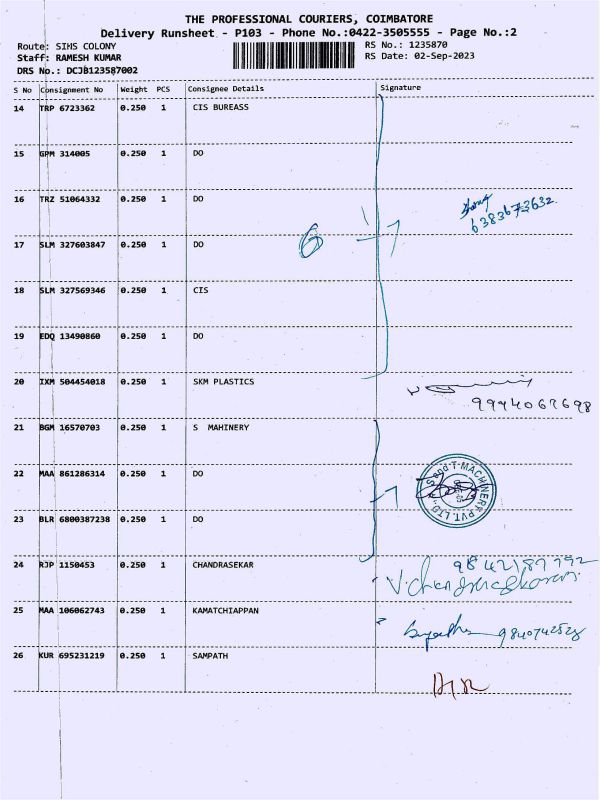 THE PROFESSIONAL COURIERS, COIMBATORE
Delivery Runsheet - P103 - Phone No.:0422-3505555 - Page No.:2
Route: SIHS COLONY RS No.: 1235870
Staff: RAMESH KUMAR RS Date: 02-Sep-2023
DRS No.: DCJB123587002
S No Consignment No Weight PCS Consignee Details Signature
14 TRP 6723362 0.250 1 CIS BUREASS
15 GPM 314005 0.250 1 DO
16 TRZ 51064332 0.250 1 DO
6383673632
17 SLM 327603847 0.250 1 DO
6
18 SLM 327569346 0.250 1 CIS
19 EDQ 13490860 0.250 1 DO
20 IXM 504454018 0.250 1 SKM PLASTICS
9994067698
21 BGM 16570703 0.250 1 S MAHINERY
22 MAA 861286314 0.250 1 DO
S and T MACHINERY PVT. LTD.
23 BLR 6800387238 0.250 1 DO
24 RJP 1150453 0.250 1 CHANDRASEKAR
V. Chandrasekaran
25 MAA 106062743 0.250 1 KAMATCHIAPPAN
9840742528
26 KUR 695231219 0.250 1 SAMPATH